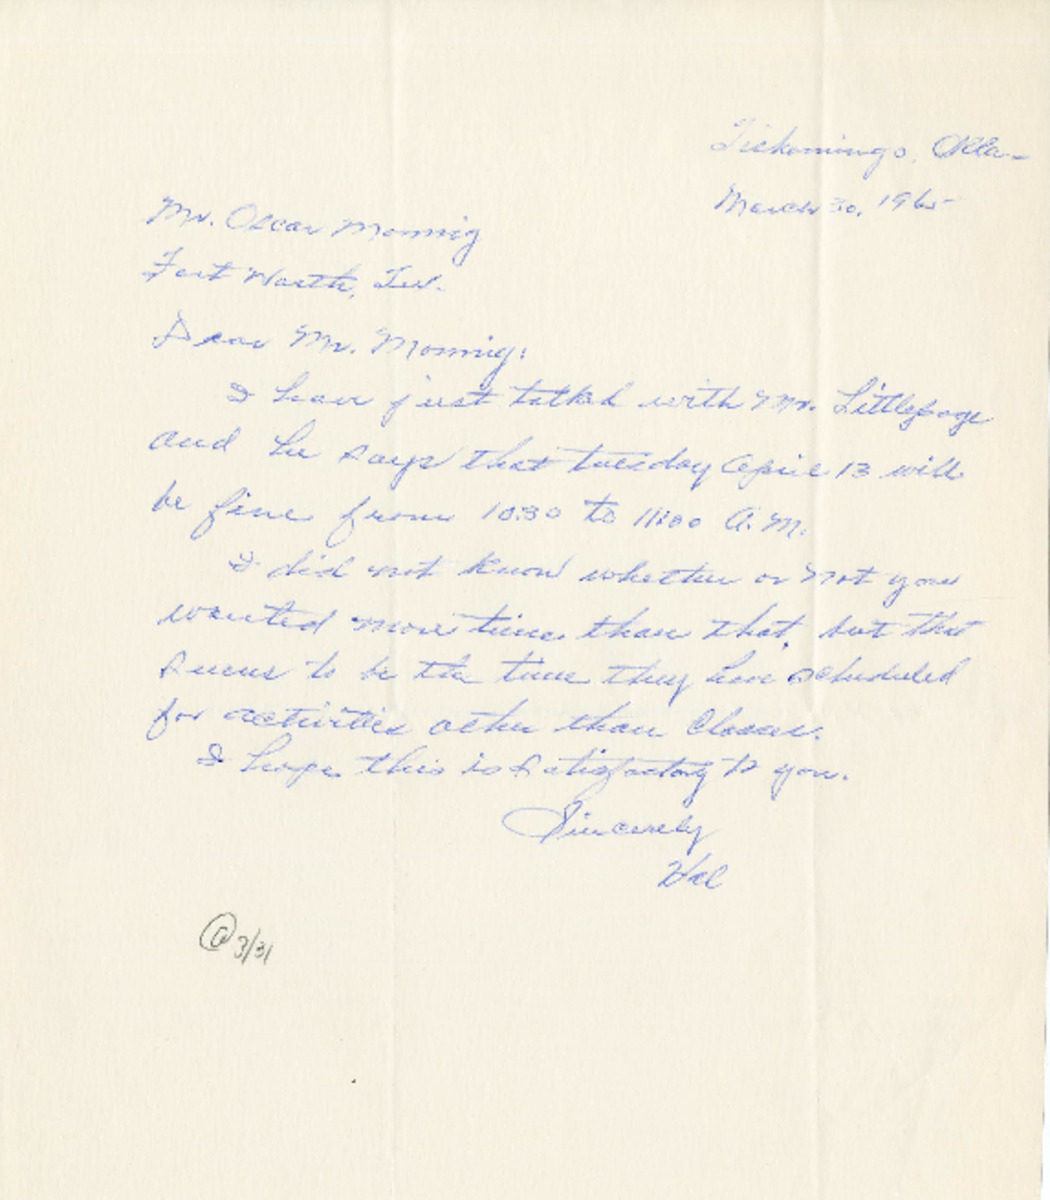 Tishomingo, Okla-
March 30, 1965
Mr. Oscar Monnig
Fort Worth, Tex.
Dear Mr. Monnig:
I have just talked with Mr. Littlepage
and he says that tuesday April 13 will
be fine from 10:30 to 11:00 A.M.
I did not know whether or not you
wanted more time than that, but that
seems to be the time they have scheduled
for activities other than classes.
I hope this is satisfactory to you.
Sincerely
Hal
@ 3/31